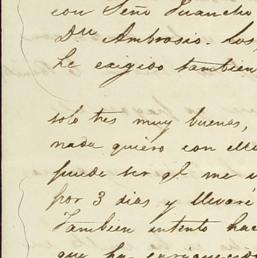 con Seño Juancho
Dn Ambrosio. Los
he exigido tambien
solo tres muy buenas,
nada quiero con ell
puede ser ql. me
por 3 dias y llevaré
Tambien intento hac
que ha enriquecido